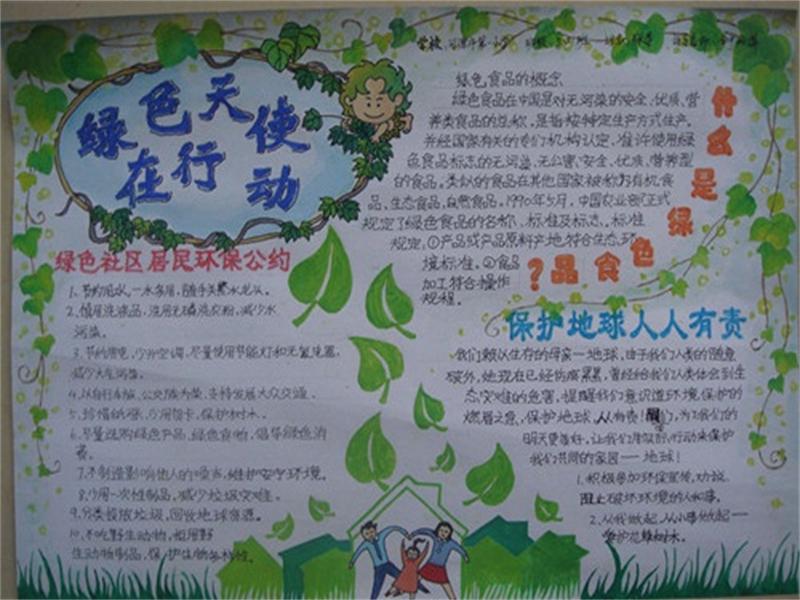 绿色天使
在行动
绿色社区居民环保公约
1、节约用水,一水多用,随手关紧水龙头。
2、慎用洗涤品,选用无磷洗衣粉,减少水
污染。
3、节约用电,少开空调,尽量使用节能灯和无氟冰箱,
减少大气污染。
4、以自行车、公交为荣,支持发展大众交通。
5、珍惜纸张,少用贺卡,保护树木。
6、尽量选购绿色产品,绿色食物,倡导绿色消
费。
7、不制造影响他人的噪声,维护安宁环境。
8、少用一次性制品,减少垃圾灾难。
9、分类投放垃圾,回收地球资源。
10、不吃野生动物,拒用野
生动物制品,保护生物多样性。
学校
绿色食品的概念
绿色食品在中国是对无污染的安全、优质、营
养类食品的总称,是指按特定生产方式生产,
并经国家有关的专门机构认定,准许使用绿
色食品标志的无污染、无公害、安全、优质、营养型
的食品。类似的食品在其他国家被称为有机食
品,生态食品,自然食品。1990年5月,中国农业部正式
规定了绿色食品的名称、标准及标志。标准
规定:①产品或产品原料产地符合生态环
境标准。②食品
加工符合操作
规程。
什么是绿色食品?
保护地球人人有责
我们赖以生存的母亲——地球,由于我们人类的随意
破坏,她现在已经伤痕累累,曾经给我们人类体会到生
态灾难的危害,提醒我们意识道环境保护的
燃眉之急,保护地球,人人有责!为了我们的
明天更美好,让我们用行动来保护
我们共同的家园——地球!
1、积极参加环保宣传,劝说、
阻止破坏环境的人和事。
2、从我做起,从小事做起——
爱护花草树木。